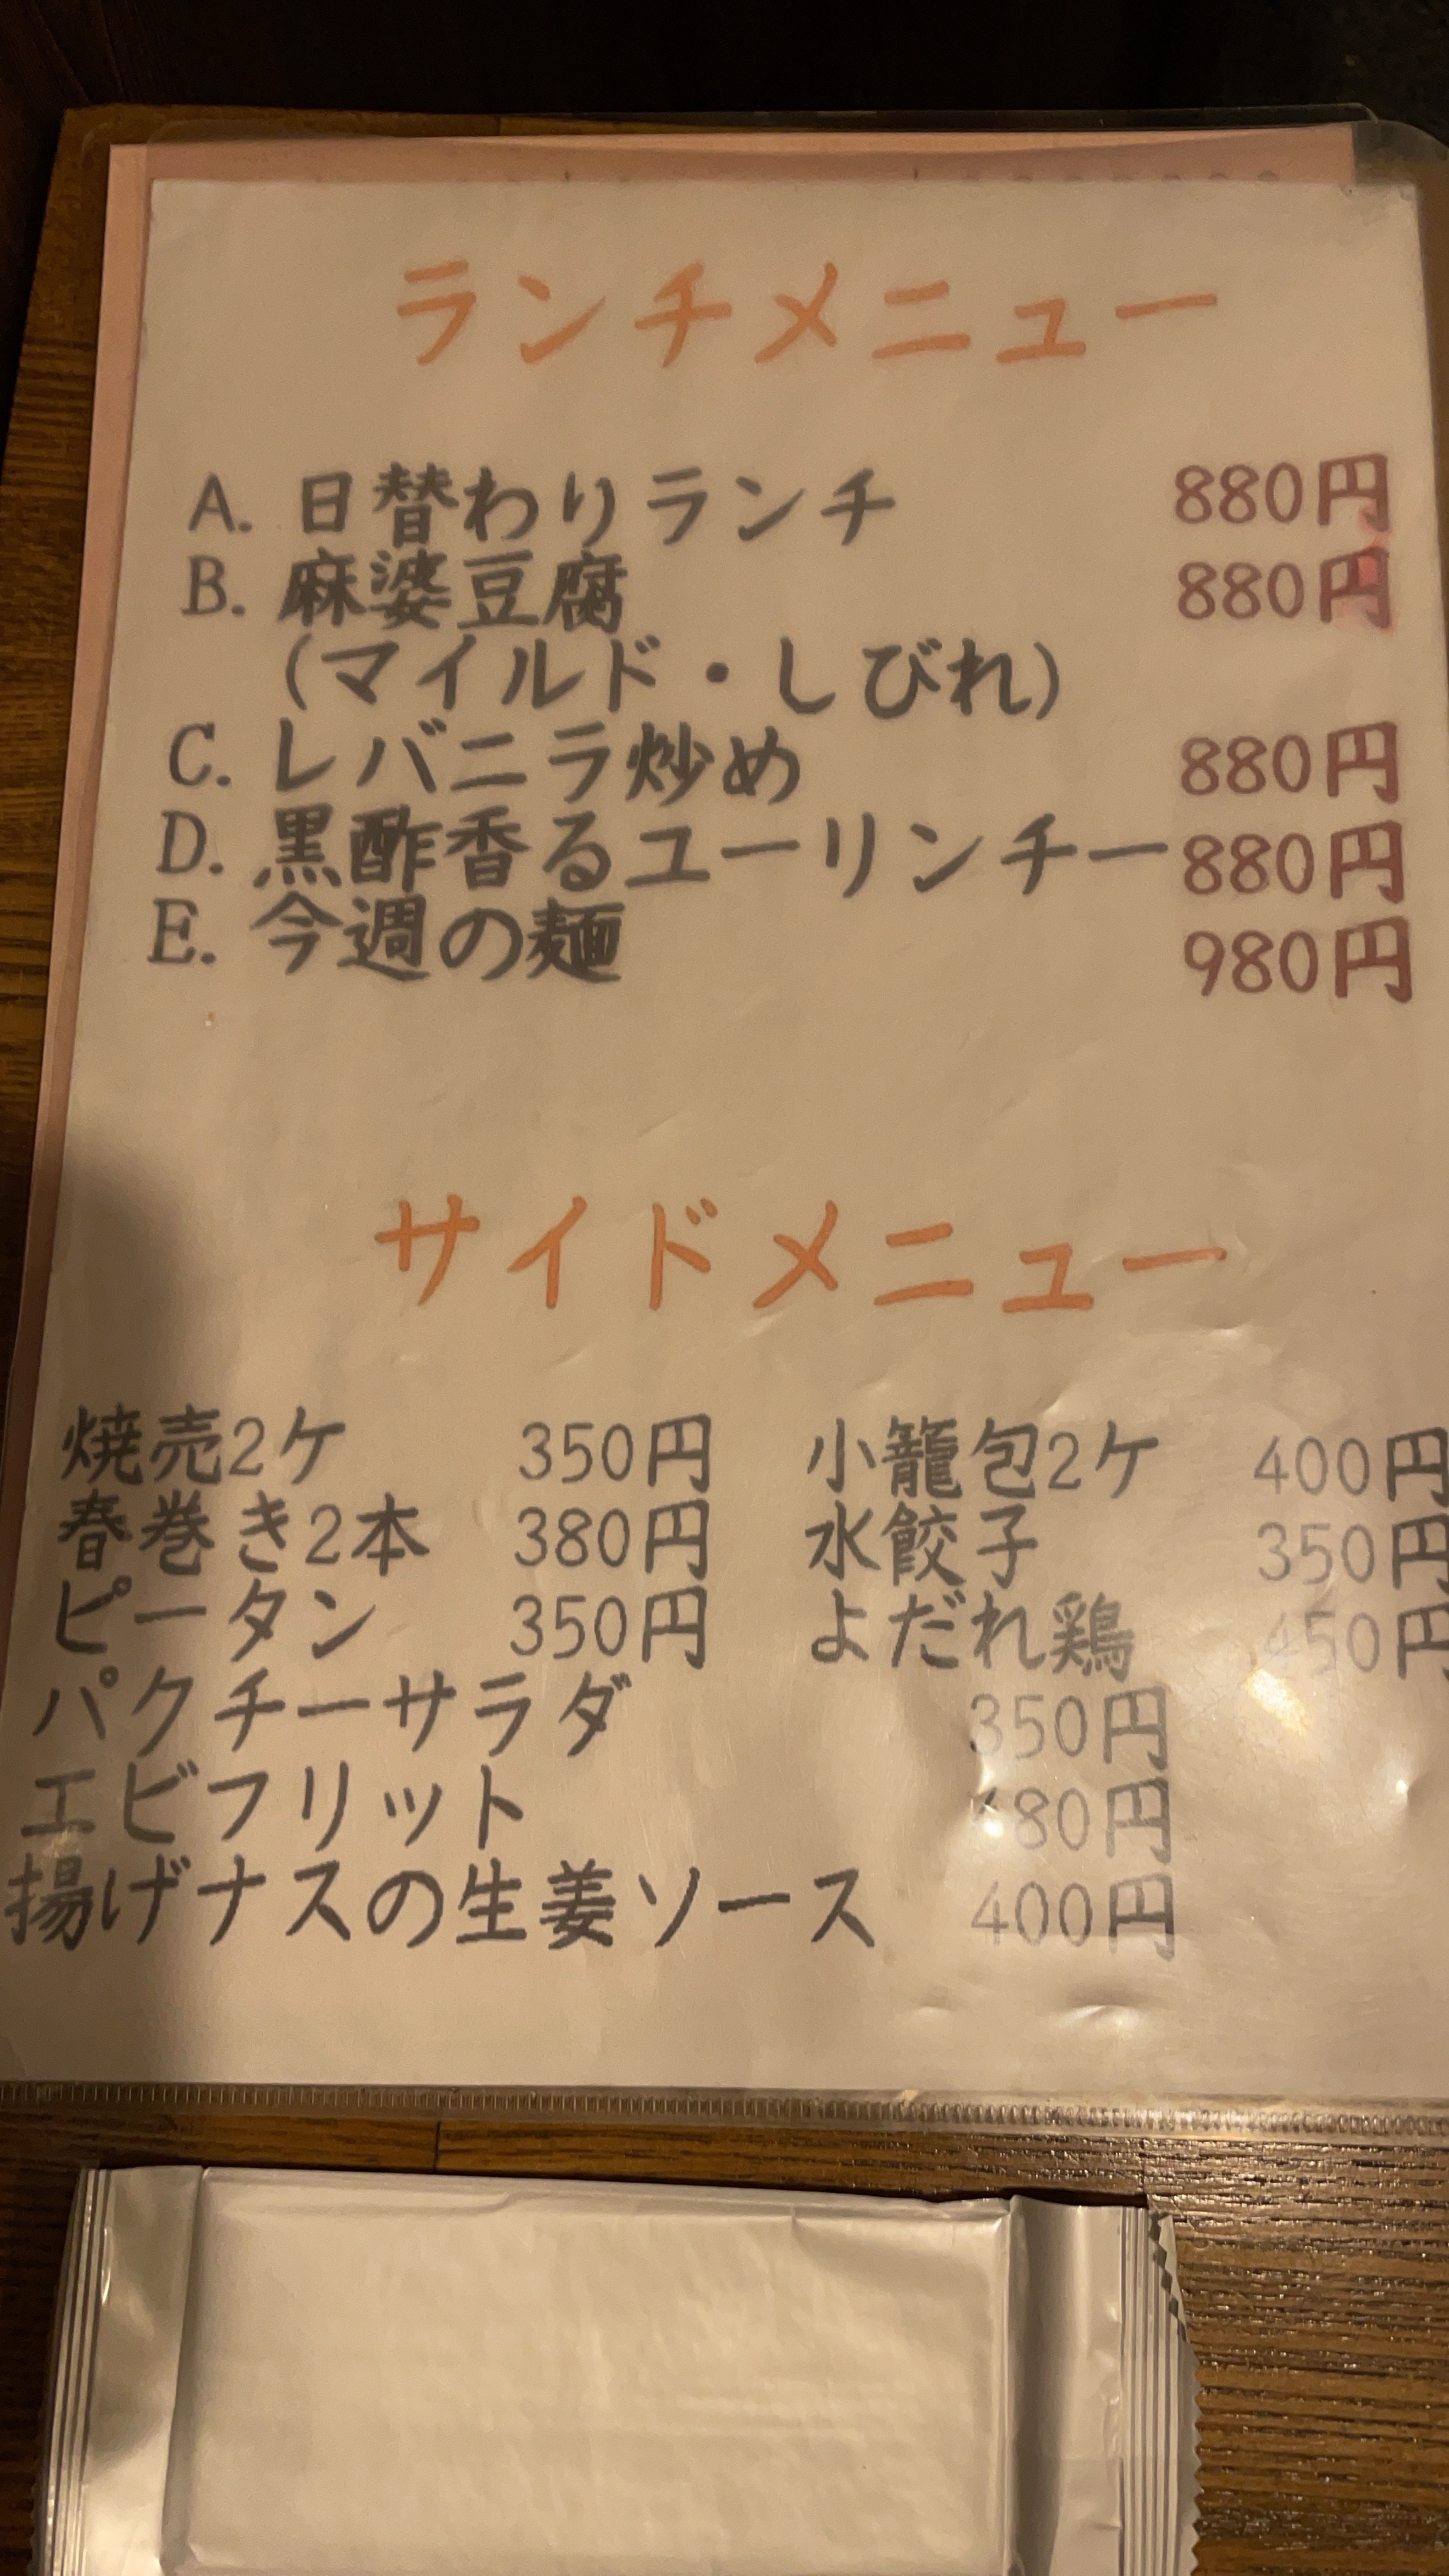 ランチメニュー
A. 日替わりランチ 880円
B. 麻婆豆腐 880円
(マイルド・しびれ)
C. レバニラ炒め 880円
D. 黒酢香るユーリンチー 880円
E. 今週の麺 980円
サイドメニュー
焼売2ケ 350円 小籠包2ケ 400円
春巻き2本 380円 水餃子 350円
ピータン 350円 よだれ鶏 450円
パクチーサラダ 350円
エビフリット
揚げナスの生姜ソース 400円